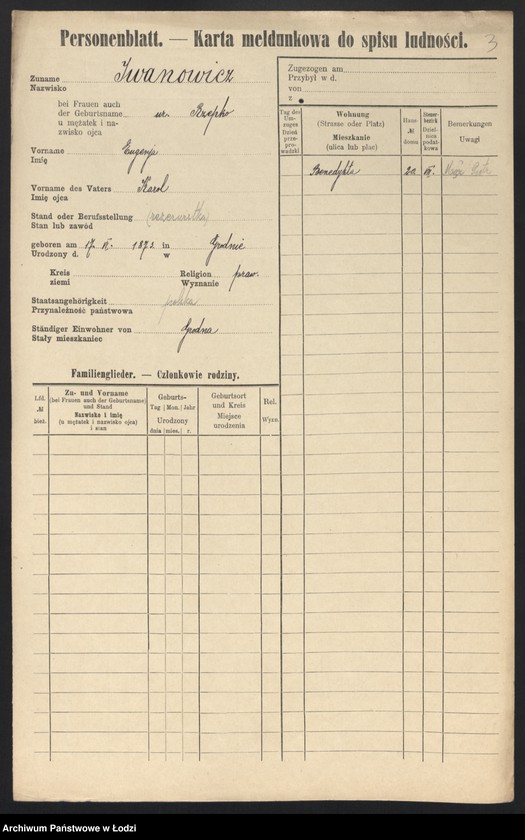 Personenblatt. — Karta meldunkowa do spisu ludności.
3
Zuname Iwanowicz
Nazwisko
bei Frauen auch
der Geburtsname ur. Rzepko
u mężatek i na-
zwisko ojca
Vorname Eugenja
Imię
Vorname des Vaters Karol
Imię ojca
Stand oder Berufsstellung (rezerwistka)
Stan lub zawód
geboren am 17. VI. 1873 in Grodnie
Urodzony d. w
Kreis
ziemi
Religion praw.
Wyznanie
Staatsangehörigkeit polska
Przynależność państwowa
Ständiger Einwohner von Grodna
Stały mieszkaniec
Familienglieder. — Członkowie rodziny.
Lfd. № bież.
Zu- und Vorname
(bei Frauen auch der Geburtsname)
und Stand
Nazwisko i imię
(u mężatek i nazwisko ojca)
i stan
Geburts-
Tag | Mon. | Jahr
Urodzony
dnia | mies. | r.
Geburtsort
und Kreis
Miejsce
urodzenia
Rel.
Wyzn.
Zugezogen am
Przybył w d.
von
z
Tag des
Um-
zuges
Dzień
prze-
pro-
wadzki
Wohnung
(Strasse oder Platz)
Mieszkanie
(ulica lub plac)
Haus-
№
domu
Steuer-
bezirk
Dziel-
nica
podat-
kowa
Bemerkungen
Uwagi
Benedykta 20 VII. Mąż Piotr
Archiwum Państwowe w Łodzi